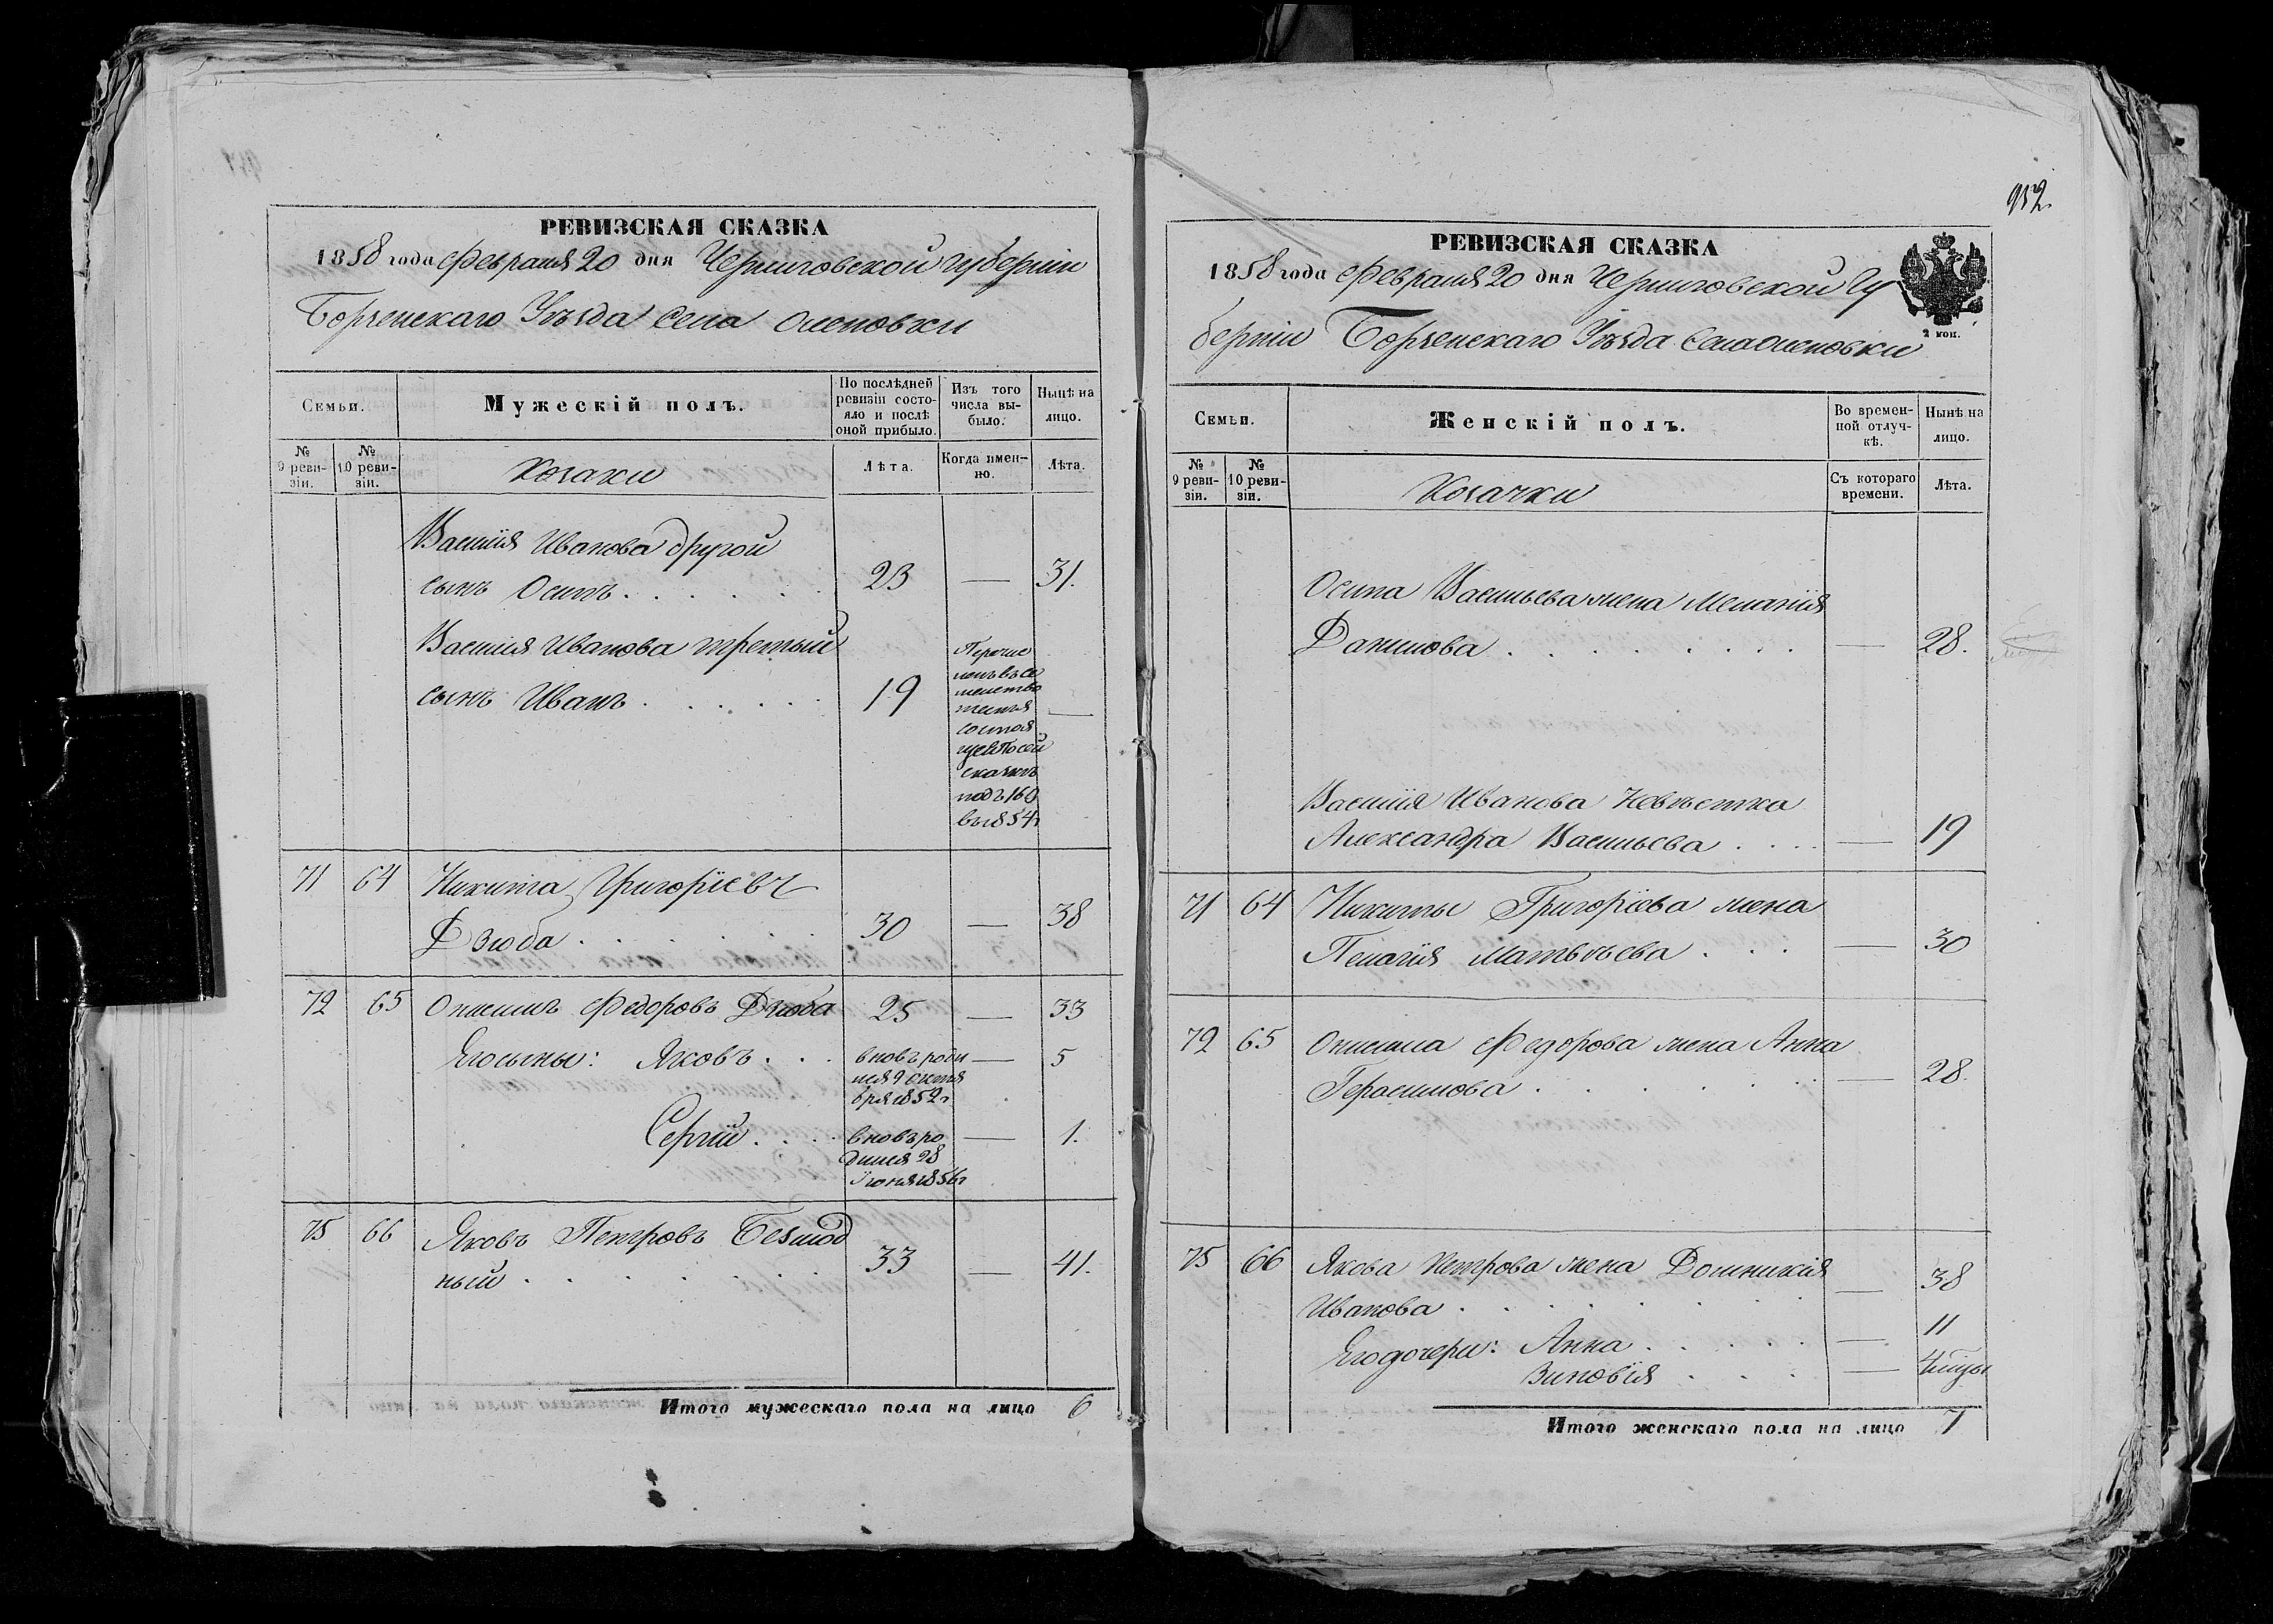 РЕВИЗСКАЯ СКАЗКА
1858 года Февраля 20 дня Черниговской губерніи
Борзенскаго Уѣзда Села Оленовки
Семьи.
Мужескій полъ.
По послѣдней ревизіи состо-
яло и послѣ
оной прибыло.
Изъ того
числа вы-
было.
Нынѣ на
лицо.
№
9 реви-
зіи.
№
10 реви-
зіи.
Козаки
Лѣта.
Когда имен-
но.
Лѣта.
Василія Иванова другой
сынъ Осипъ . . . . . . 23 — 31.
Василія Иванова третьій
сынъ Иванъ . . . . . . 19 —
Перечис
ленъ въ се
мейство
тестя
состоя
щее по сей
сказкѣ
подъ 160
въ 1854г
71 64 Никита Григоріевъ
Дзюба . . . . . . 30 — 38
72 65 Онисимъ Федоровъ Дзюба 25 — 33
Его сыны: Яковъ . . . вновь роди — 5
лся 9 октя
бря 1852г
Сергій . . . . вновь ро — 1.
дился 28
Іюня 1856г
75 66 Яковъ Петровъ Безрод
ный . . . . . . . 33 — 41.
Итого мужескаго пола на лицо 6
952
РЕВИЗСКАЯ СКАЗКА
1858 года Февраля 20 дня Черниговской Гу
берніи Борзенскаго Уѣзда Села Оленовки
2 коп.
Семьи.
Женскій полъ.
Во времен-
ной отлуч-
кѣ.
Нынѣ на
лицо.
№
9 реви-
зіи.
№
10 реви-
зіи.
Козачки
Съ котораго
времени.
Лѣта.
Осипа Васильева жена Меланія
Данилова . . . . . . . . — 28.
Василія Иванова Невѣстка
Александра Васильева . . . . — 19
71 64 Никиты Григоріева жена
Пелагія Матвѣева . . . — 30
72 65 Онисима Федорова жена Анна
Герасимова . . . . . . . — 28.
75 66 Якова Петрова жена Домникія
Иванова . . . . . . . . — 38
Его дочери: Анна . . . . . — 11
Зиновія . . . . — 4 мѣсяцы
Итого женскаго пола на лицо 7